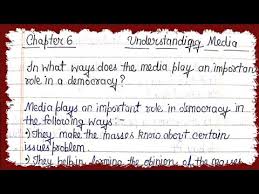 Chapter 6 Understanding Media
In what ways does the media play an important
role in a democracy?
Media plays an important role in democracy in
the following ways:-
•) They make the masses know about certain
issues problem.
•) They help in forming the opinion of the masses